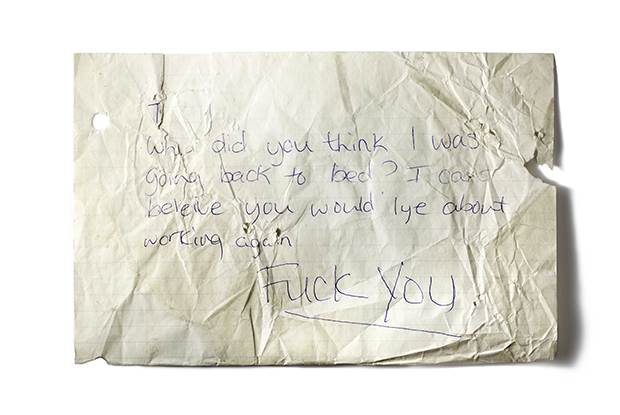 T
did you think I was
going back to bed? I cant
beleive you would lye about
working again
Fuck You